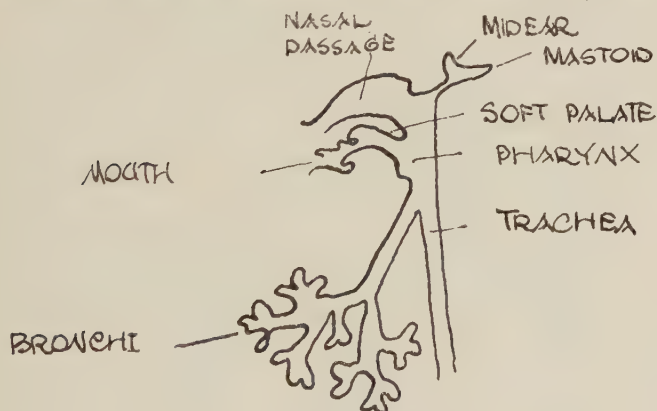 NASAL
PASSAGE
MIDEAR
MASTOID
SOFT PALATE
PHARYNX
MOUTH
TRACHEA
BRONCHI